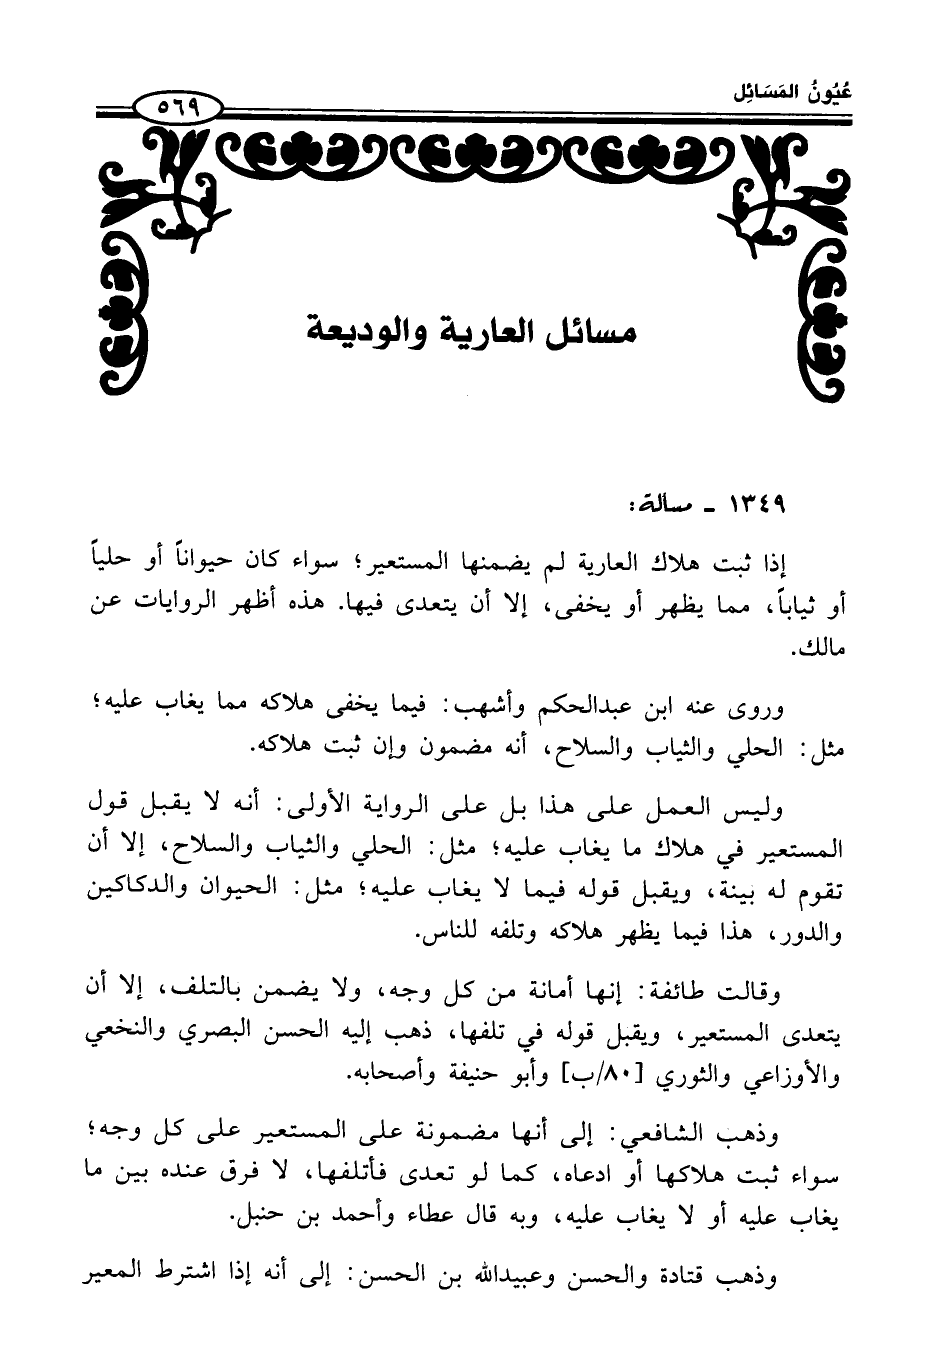 عُيُونُ المَسَائِل
٥٦٩
مسائل العارية والوديعة
١٣٤٩ ـ مسألة:
إذا ثبت هلاك العارية لم يضمنها المستعير؛ سواء كان حيواناً أو حلياً
أو ثياباً، مما يظهر أو يخفى، إلا أن يتعدى فيها. هذه أظهر الروايات عن
مالك.
وروى عنه ابن عبدالحكم وأشهب: فيما يخفى هلاكه مما يغاب عليه؛
مثل: الحلي والثياب والسلاح، أنه مضمون وإن ثبت هلاكه.
وليس العمل على هذا بل على الرواية الأولى: أنه لا يقبل قول
المستعير في هلاك ما يغاب عليه؛ مثل: الحلي والثياب والسلاح، إلا أن
تقوم له بينة، ويقبل قوله فيما لا يغاب عليه؛ مثل: الحيوان والدكاكين
والدور، هذا فيما يظهر هلاكه وتلفه للناس.
وقالت طائفة: إنها أمانة من كل وجه، ولا يضمن بالتلف، إلا أن
يتعدى المستعير، ويقبل قوله في تلفها، ذهب إليه الحسن البصري والنخعي
والأوزاعي والثوري [٨٠/ب] وأبو حنيفة وأصحابه.
وذهب الشافعي: إلى أنها مضمونة على المستعير على كل وجه؛
سواء ثبت هلاكها أو ادعاه، كما لو تعدى فأتلفها، لا فرق عنده بين ما
يغاب عليه أو لا يغاب عليه، وبه قال عطاء وأحمد بن حنبل.
وذهب قتادة والحسن وعبيدالله بن الحسن: إلى أنه إذا اشترط المعير